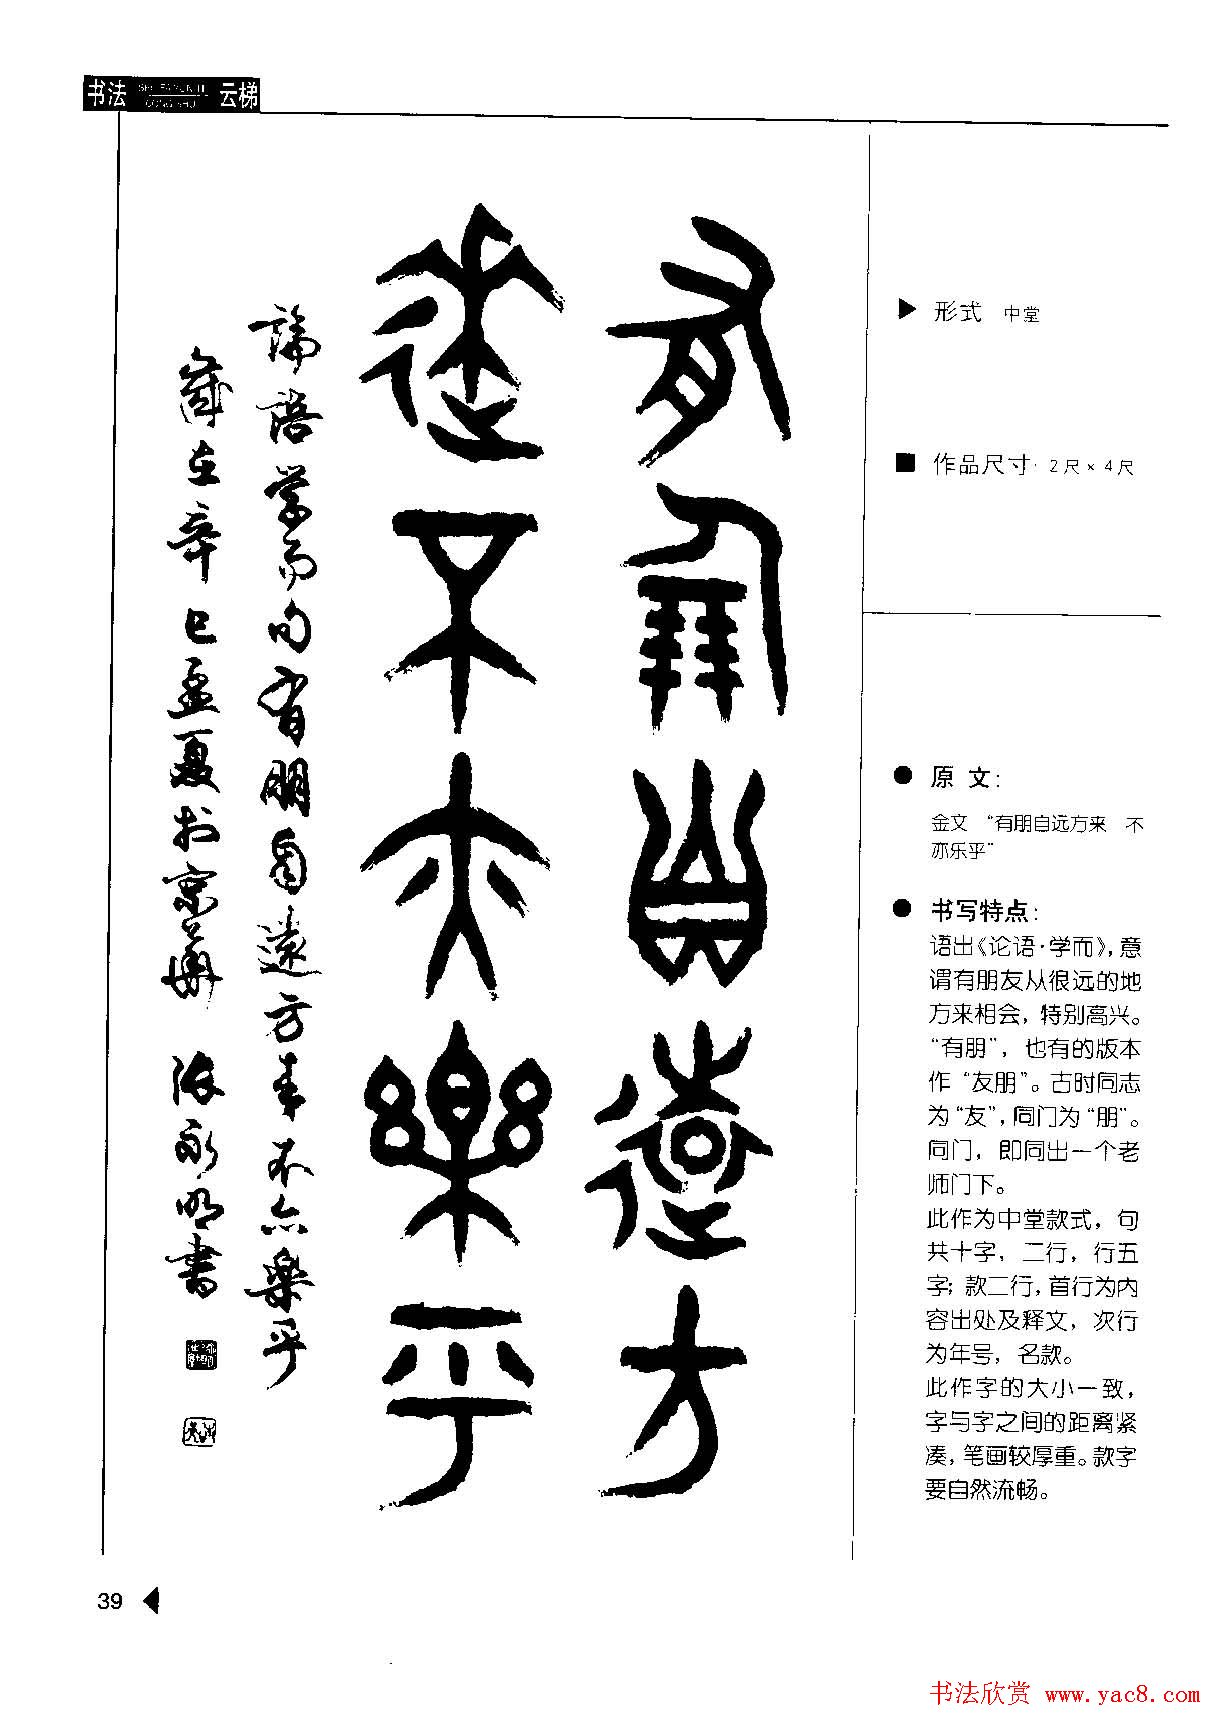 书法 云梯
有朋自远方
来不亦乐乎
論語学而句有朋自遠方来不亦樂乎
歲在辛巳孟夏於京華 张永明書
▶ 形式 中堂
■ 作品尺寸 2尺×4尺
● 原文:
金文 “有朋自远方来 不
亦乐乎”
● 书写特点:
语出《论语·学而》,意
谓有朋友从很远的地
方来相会，特别高兴。
“有朋”，也有的版本
作“友朋”。古时同志
为“友”,同门为“朋”。
同门，即同出一个老
师门下。
此作为中堂款式，句
共十字，二行，行五
字；款二行,首行为内
容出处及释文，次行
为年号，名款。
此作字的大小一致，
字与字之间的距离紧
凑,笔画较厚重。款字
要自然流畅。
39
书法欣赏 www.yac8.com